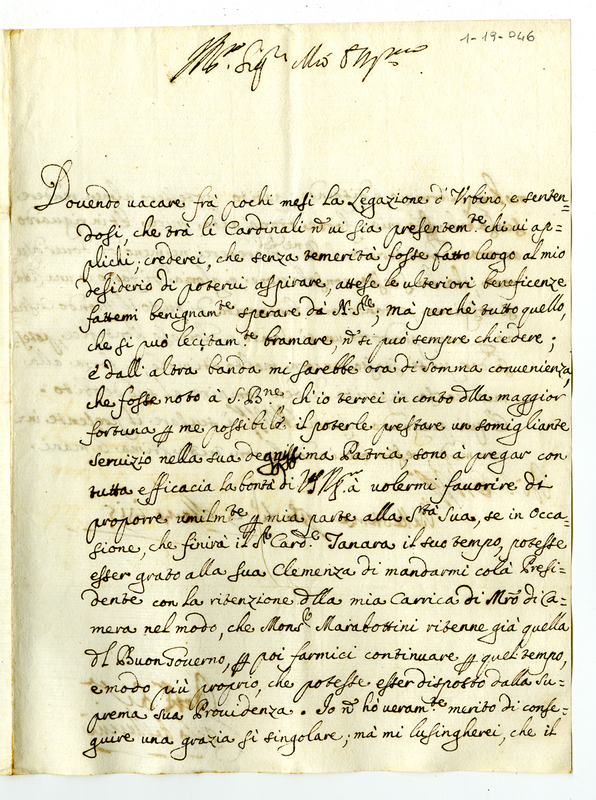 1-19-046
Sig.r Mio
Dovendo vacare frà pochi mesi la Legazione d'Urbino, e senten=
dosi, che trà li Cardinali ñ vi sia presentem.te chi vi ap=
plichi, crederei, che senza temerità fosse fatto luogo al mio
desiderio di potervi aspirare, attese le ulteriori beneficenze
fattemi benignam.te sperare dà N. S.re; mà perchè tutto quello,
che si può lecitam.te bramare, ñ si può sempre chiedere;
e dall'altra banda mi sarebbe ora di somma convenienza,
che fosse noto à S. B.ne ch'io terrei in conto dlla maggior
fortuna ꝑ me possibile il poterle prestare un somigliante
servizio nella sua degnissima Patria, sono à pregar con
tutta efficacia la bontà di à volermi favorire di
proporre umilm.te ꝑ mia parte alla S.tà Sua, se in Occa=
sione, che finirà il S.r Card.e Tanara il suo tempo, potesse
esser grato alla sua Clemenza di mandarmi colà Presi=
dente con la ritenzione dlla mia Carrica di Mrõ di Ca=
mera nel modo, che Mons.r Marabottini ritenne già quella
dl Buon Governo, ꝑ poi farmici continuare ꝑ quel tempo,
e modo più proprio, che potesse esser disposto dalla Su=
prema sua Providenza. Io ñ hò veram.te merito di conse=
guire una grazia sì singolare; mà mi lusingherei, che il